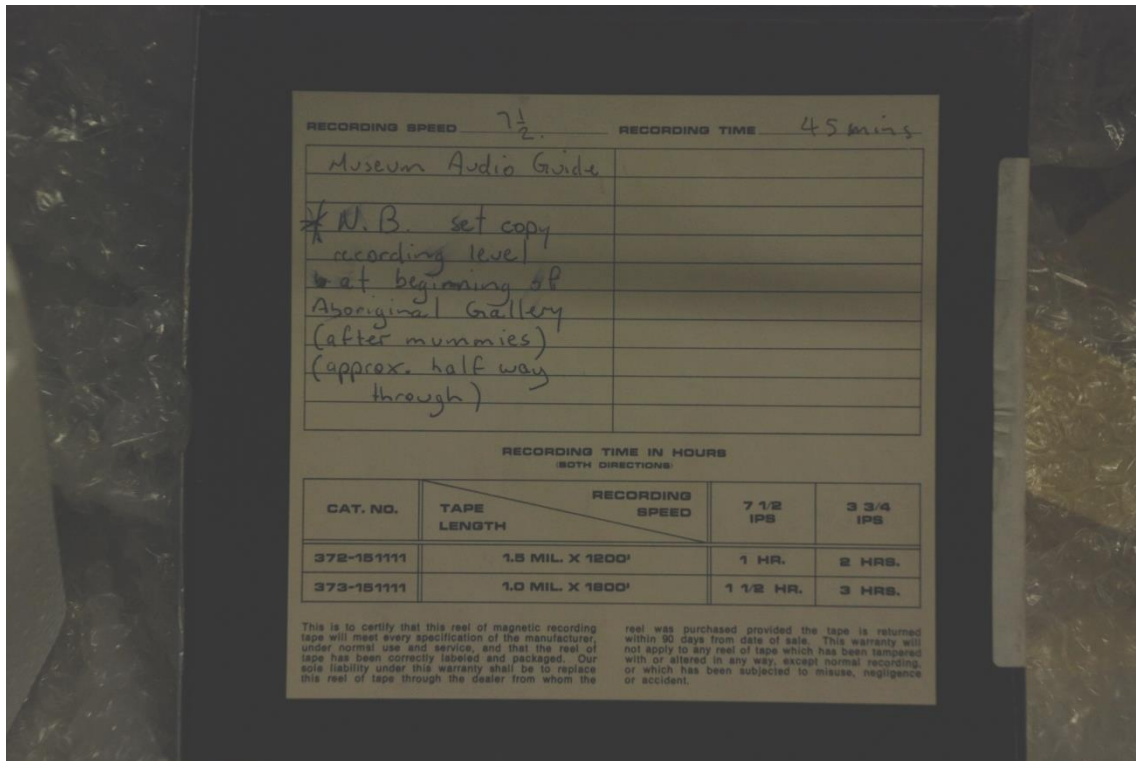 RECORDING SPEED 7 1/2. RECORDING TIME 45 mins
Museum Audio Guide
* N.B. set copy
recording level
at beginning of
Aboriginal Gallery
(after mummies)
(approx. half way
through)
RECORDING TIME IN HOURS
(BOTH DIRECTIONS)
CAT. NO. TAPE LENGTH RECORDING SPEED 7 1/2 IPS 3 3/4 IPS
372-151111 1.5 MIL. X 1200' 1 HR. 2 HRS.
373-151111 1.0 MIL. X 1800' 1 1/2 HR. 3 HRS.
This is to certify that this reel of magnetic recording
tape will meet every specification of the manufacturer,
under normal use and service, and that the reel of
tape has been correctly labeled and packaged. Our
sole liability under this warranty shall be to replace
this reel of tape through the dealer from whom the
reel was purchased provided the tape is returned
within 90 days from date of sale. This warranty will
not apply to any reel of tape which has been tampered
with or altered in any way, except normal recording,
or which has been subjected to misuse, negligence
or accident.